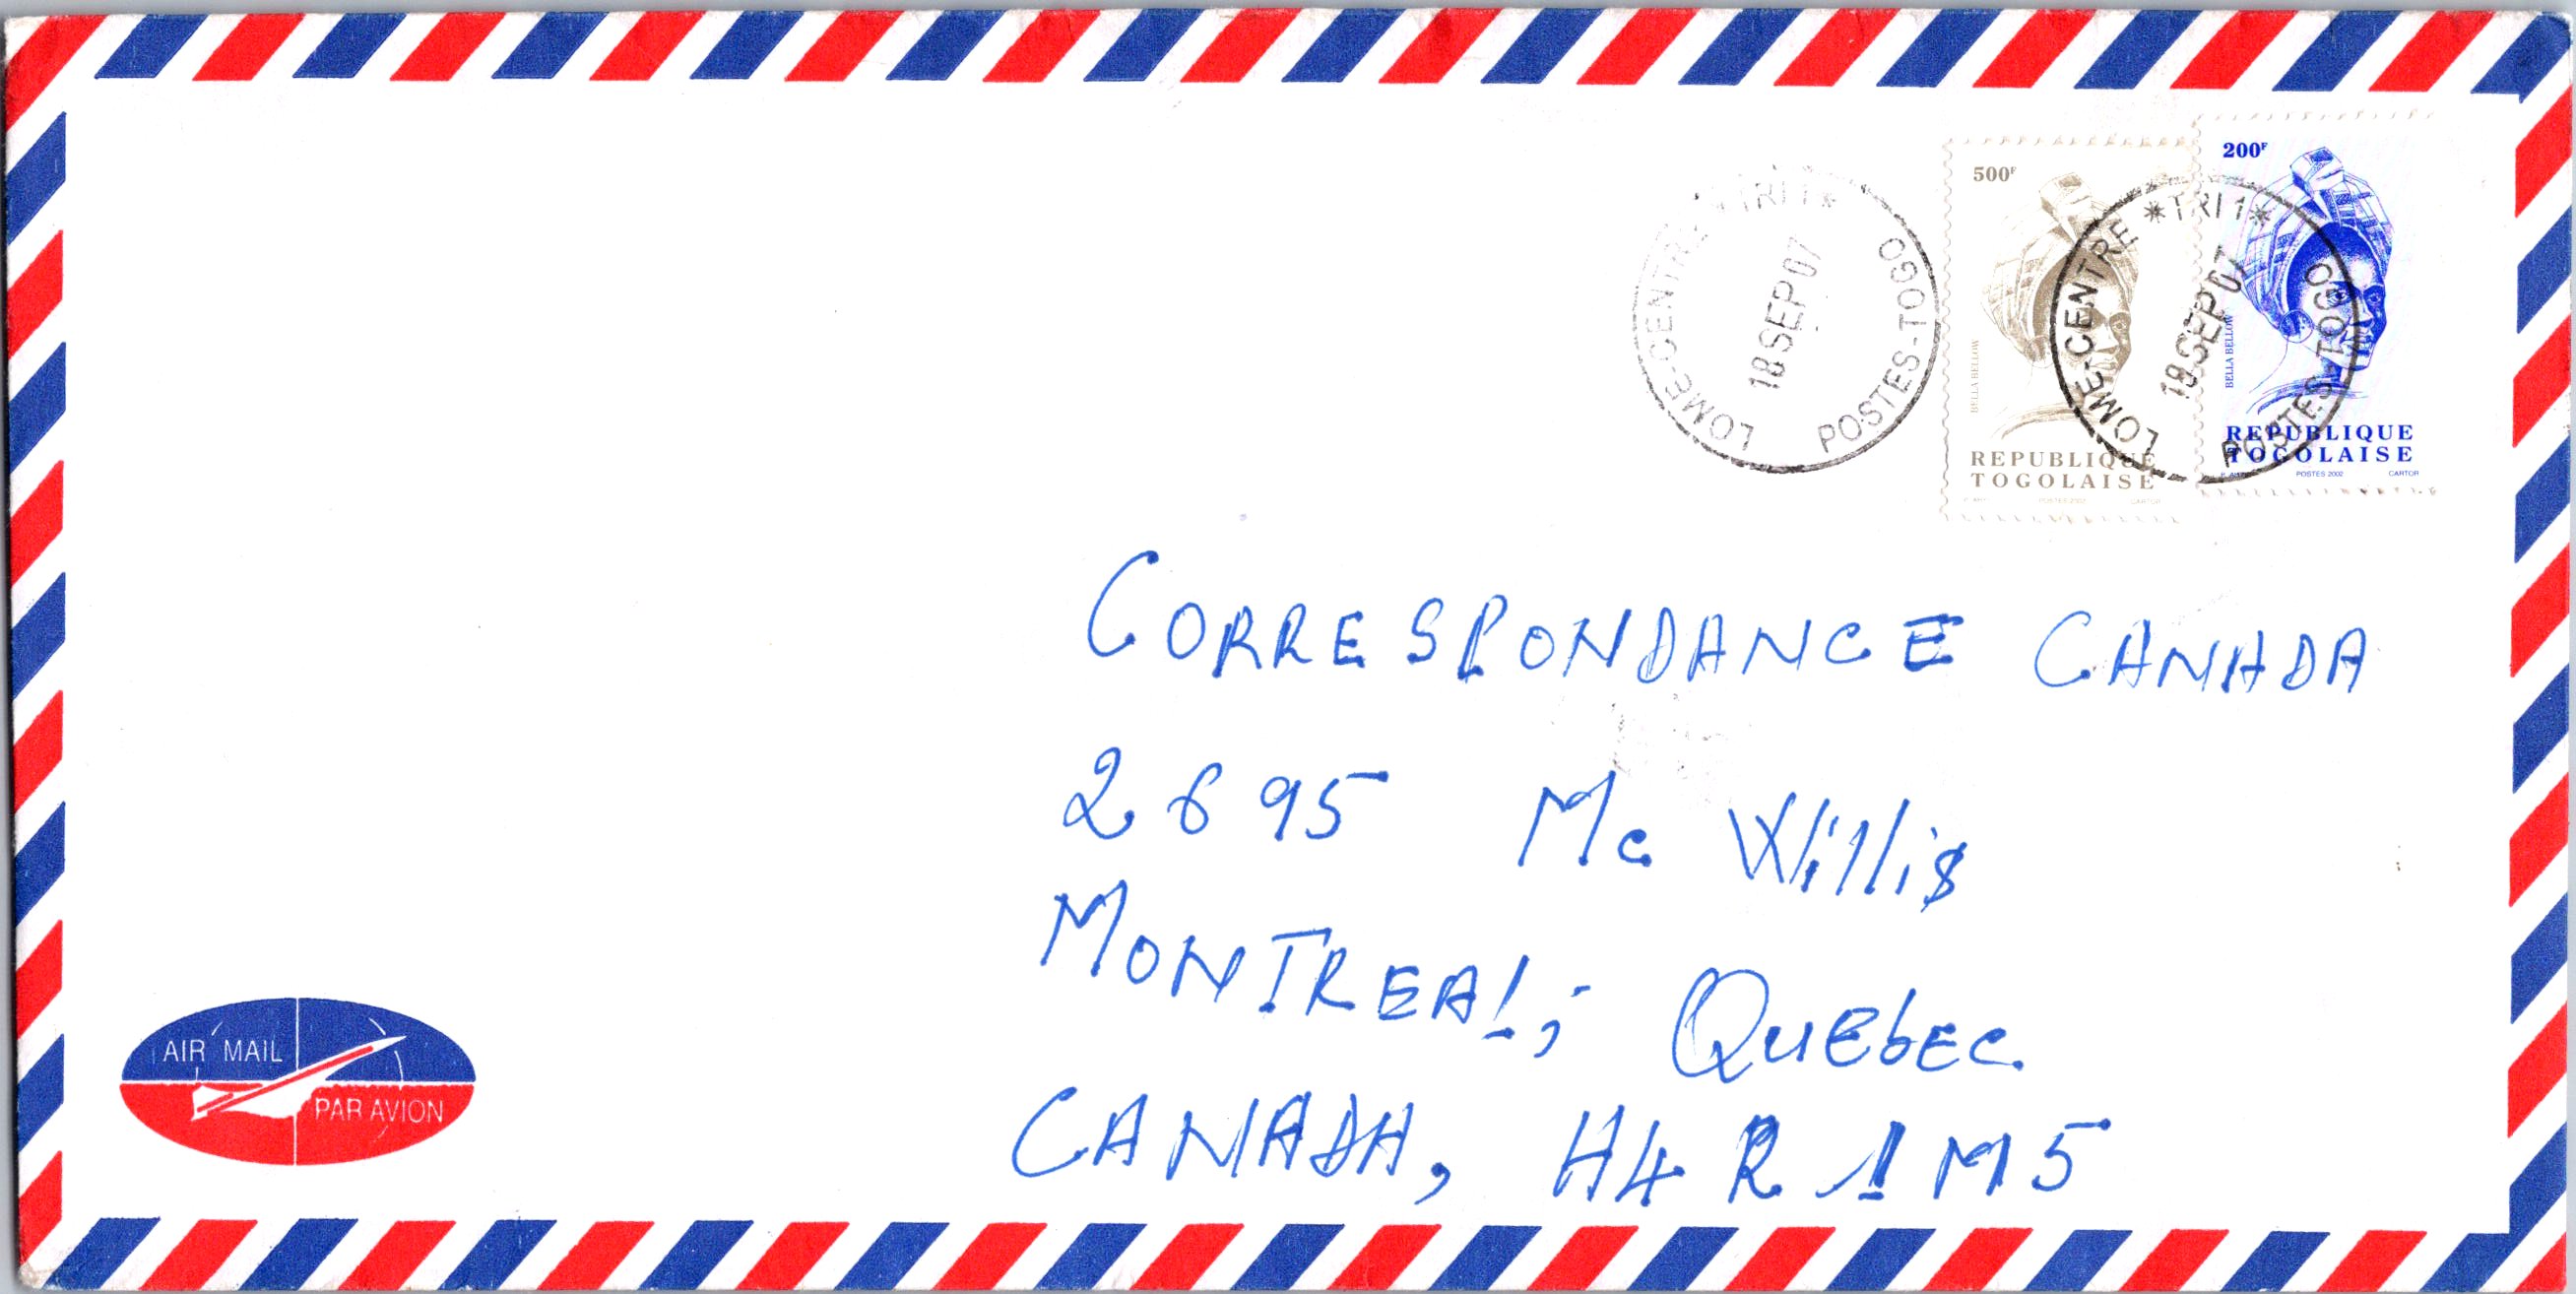 500F
200F
BELLA BELLOW
BELLA BELLOW
REPUBLIQUE
TOGOLAISE
POSTES 2002
CARTOR
REPUBLIQUE
TOGOLAISE
POSTES 2002
CARTOR
LOME-CENTRE *TRI 1* POSTES-TOGO
18 SEP 07
LOME-CENTRE *TRI 1* POSTES-TOGO
18 SEP 07
CORRESPONDANCE CANADA
2695 Mc Willis
MONTREAl, QUEbEC
CANADA, H4R 1M5
AIR MAIL
PAR AVION